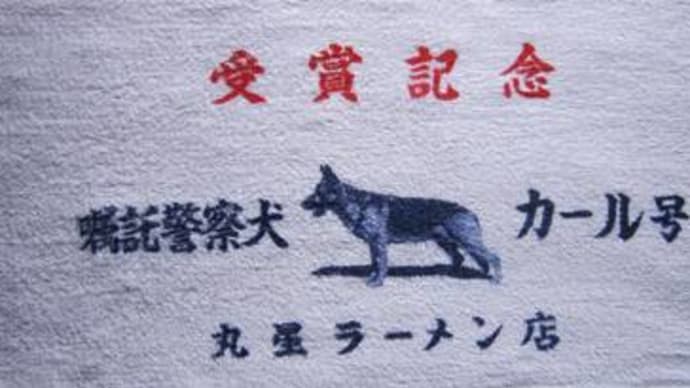 受賞記念
嘱託警察犬 カール号
丸星ラーメン店